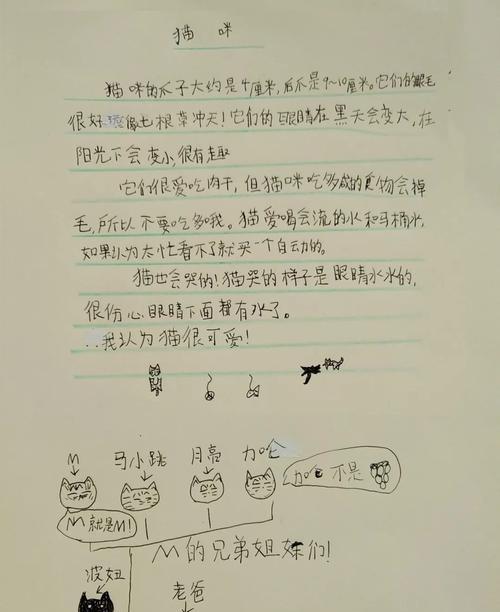 猫 咪
猫咪的爪子大约是4厘米,后爪是9~10厘米。它们的眼毛
很好 像也根草冲天!它们的眼睛在黑天会变大,在
阳光下会变小,很有趣
它们很爱吃肉干,但猫咪吃多咸的食物会掉
毛,所以不要吃多我。猫爱喝会流的水和马桶水,
如果认为太忙看不了就买一个自动的。
猫也会哭的!猫哭的样子是眼睛水水的,
很伤心眼睛下面都有水了。
我认为猫很可爱!
M 马小跳 月亮 加仑
加仑不是
M就是M!
M的兄弟姐妹们!
波妞
老爸